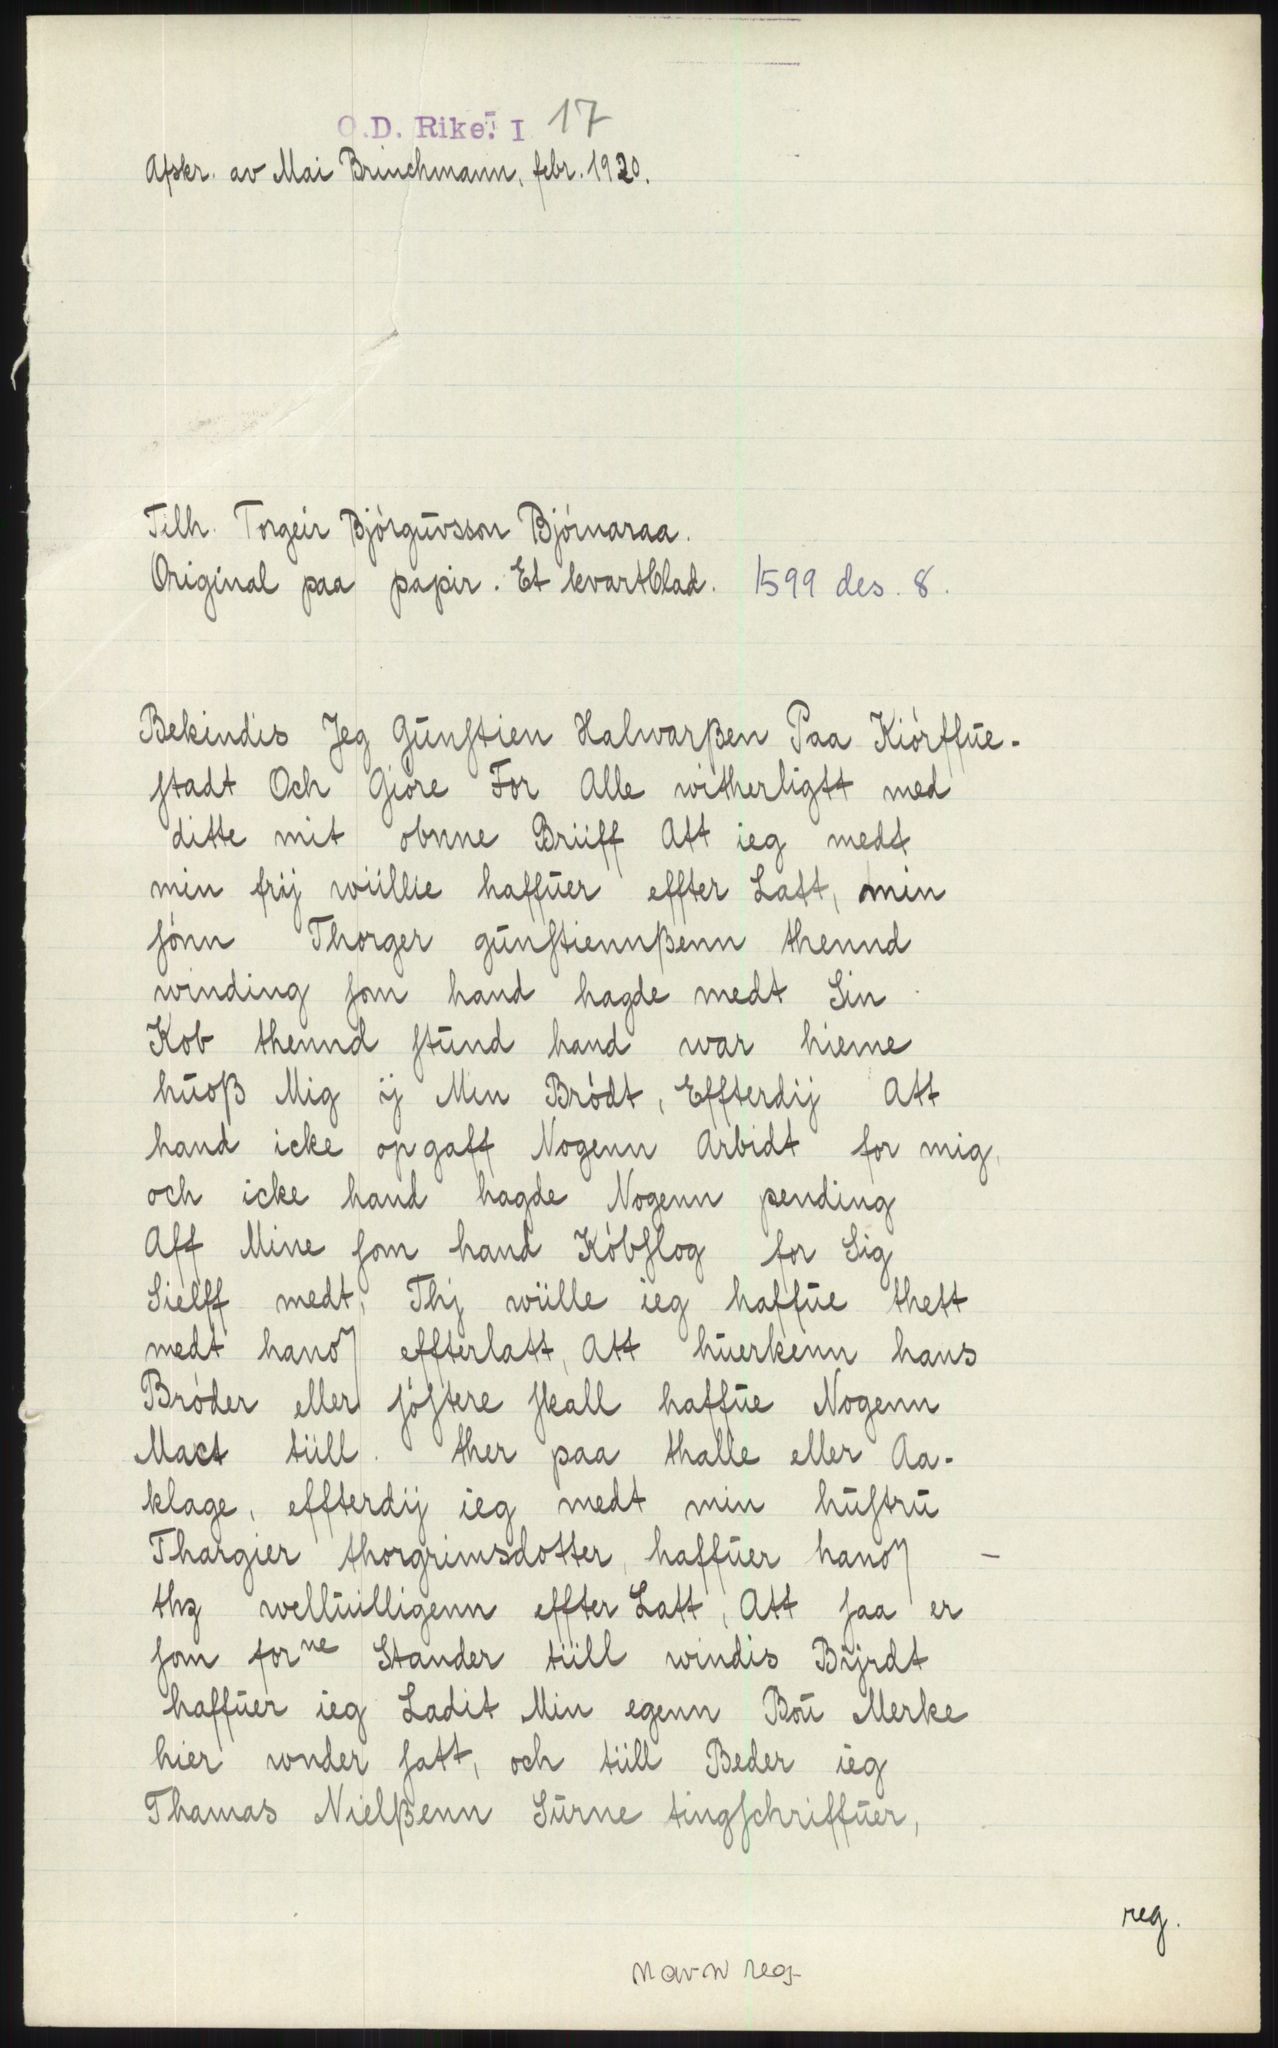 O.D. Rike. I 17
Afskr. av Mai Brinchmann, febr. 1920.
Tilh. Torgeir Bjórgūvsson Bjórnaraa.
Original paa papir. Et kvartblad. 1599 des. 8.
Bekindis Jeg Gūnſtien Halwarßen Paa Kiórffūe-
ſtadt Och Gióre For Alle witherligtt med
ditte mit obnne Briiff Att ieg medt
min frij wiillie haffūer effter Latt, min
ſónn Thorger gūnſtiennßenn thennd
winding ſom hand hagde medt Sin
Kob thennd ſtūnd hand war hieme
hūoß Mig ij Min Bródt, Effterdij Att
hand icke op gaff Nogenn Arbidt for mig,
och icke hand hagde Nogenn pending
Aff Mine ſom hand Kóbſlog for Sig
Sielff medt, Thj wiille ieg haffūe thett
medt hanom effterlatt, Att hūerkenn hans
Bróder eller ſóſtere ſkall haffūe Nogenn
Mact tiill. ther paa thalle eller Aa-
klage, effterdij ieg medt min hūſtrū
Thargier thorgrimsdotter, haffūer hanom –
thz wellūilligenn effter Latt, Att ſaa er
ſom forne Stander tiill windis Bijrdt
haffūer ieg Ladit Min egenn Boū Merke
hier wnder ſatt, och tiill Beder ieg
Thamas Nielßenn Sūrne tingſchriffūer,
reg.
navn reg.